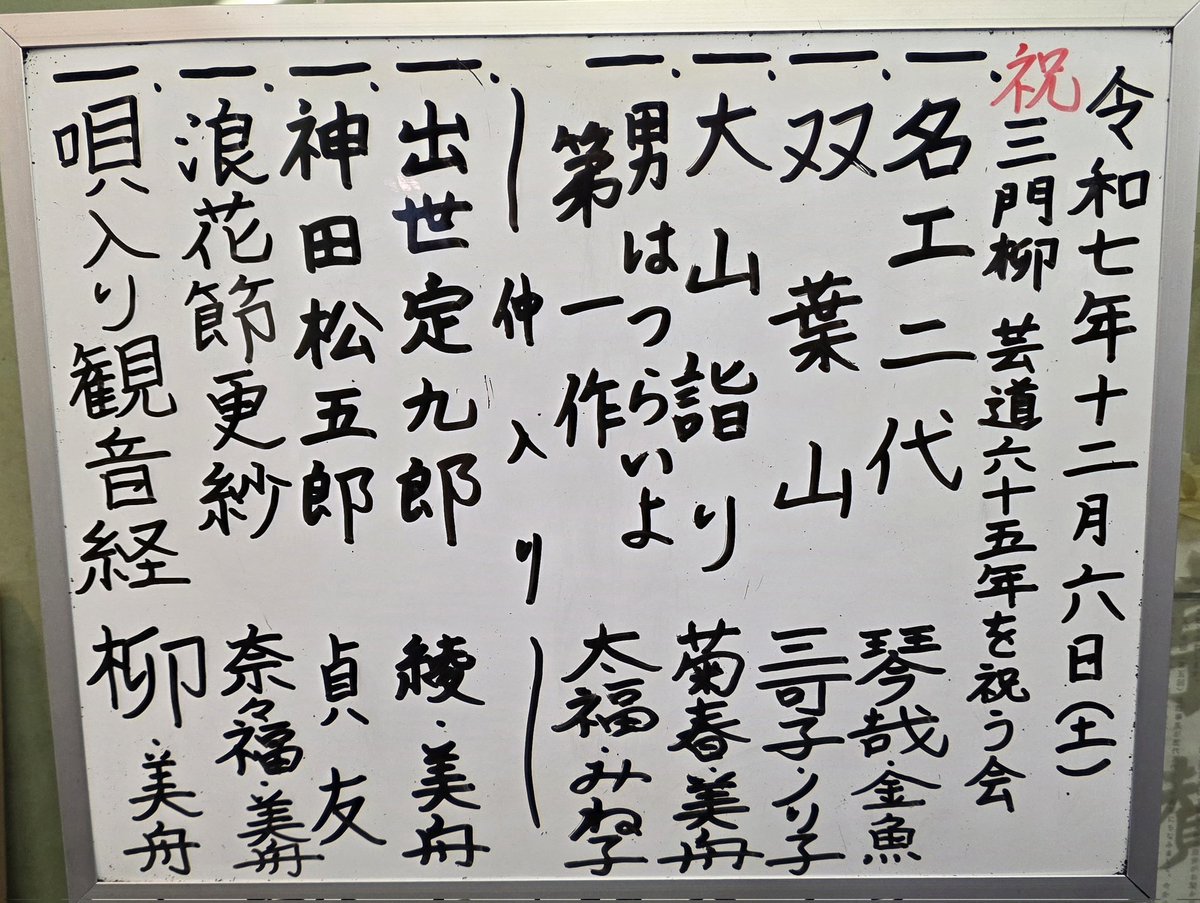 令和七年十二月六日(土)
祝 三門柳 芸道六十五年を祝う会
一.名工二代 琴哉・金魚
一.双葉山 三可子・ノリ子
一.大山詣り 菊春・美舟
一.男はつらいよ
第一作 太福・みね子
仲入り
一.出世定九郎 綾・美舟
一.神田松五郎 貞友
一.浪花節更紗 奈々福・美舟
一.唄入り観音経 柳・美舟